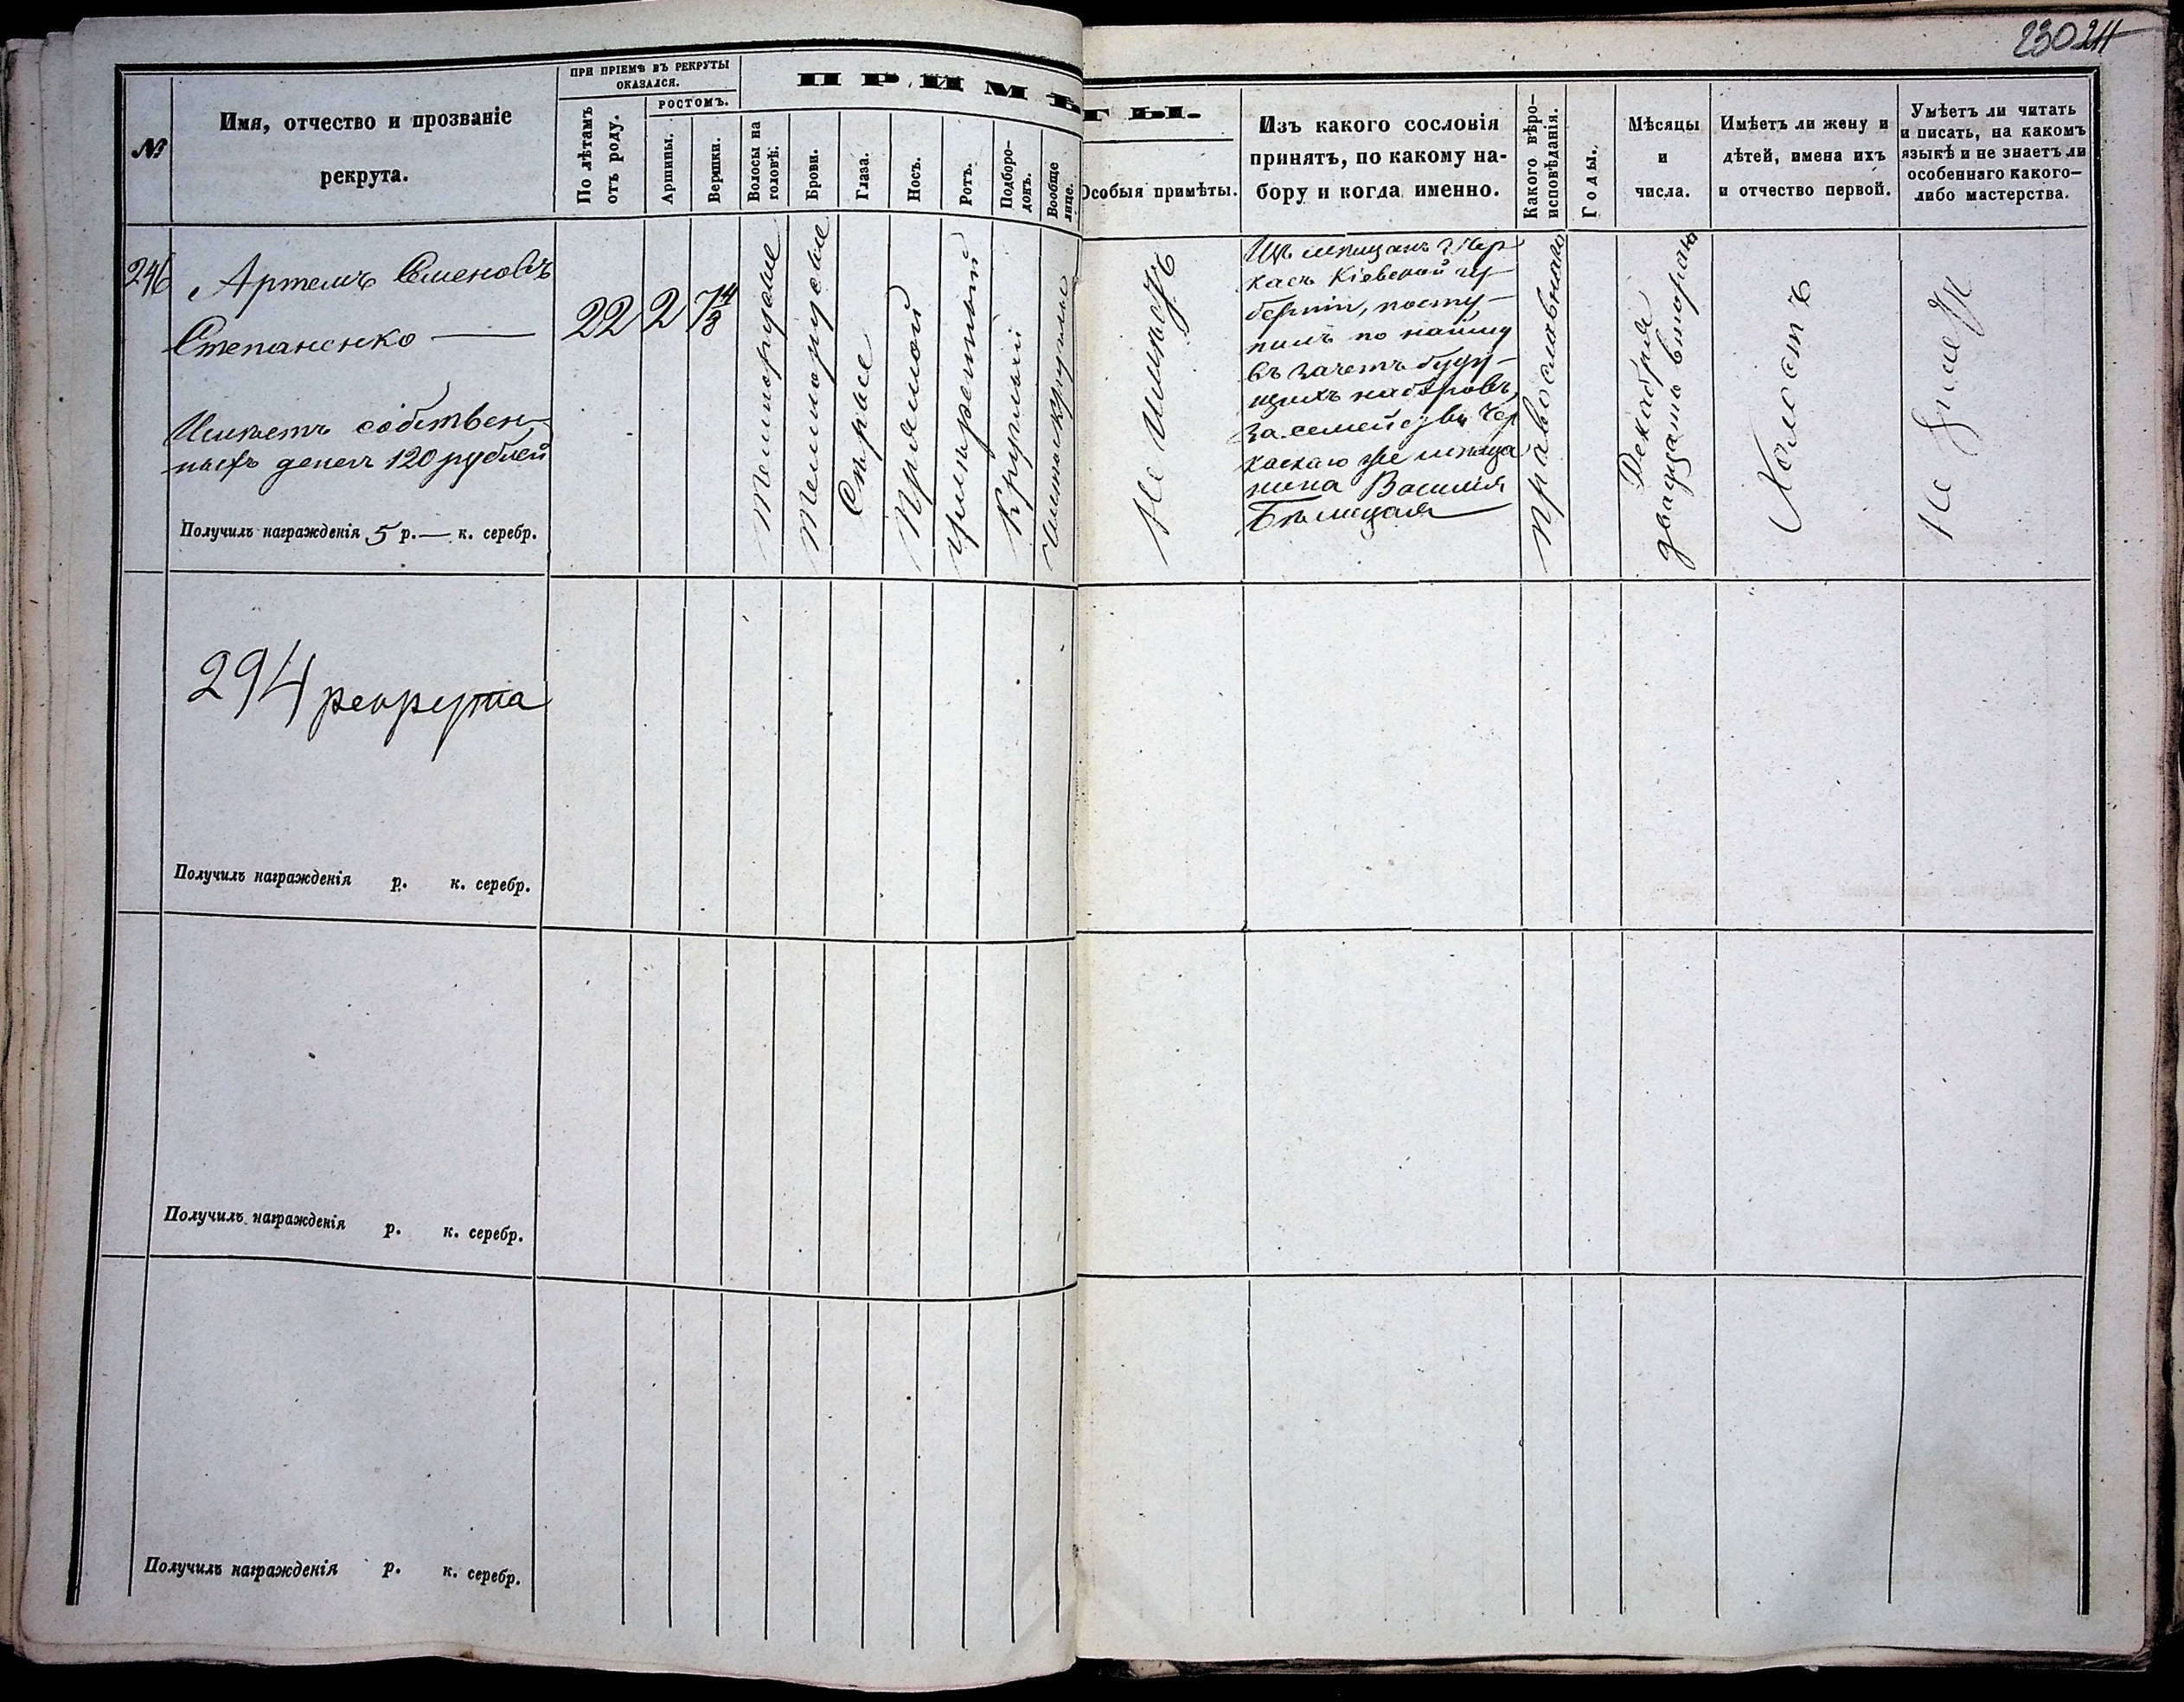 230 211
№
Имя, отчество и прозваніе
рекрута.
ПРИ ПРІЕМѢ ВЪ РЕКРУТЫ
ОКАЗАЛСЯ.
По лѣтамъ
отъ роду.
РОСТОМЪ.
Аршины.
Вершки.
ПРИМѢТЫ.
Волосы на
головѣ.
Брови.
Глаза.
Носъ.
Ротъ.
Подборо-
докъ.
Вообще
лице.
Особыя примѣты.
Изъ какого сословія
принятъ, по какому на-
бору и когда именно.
Какого вѣро-
исповѣданія.
Годы.
Мѣсяцы
и
числа.
Имѣетъ ли жену и
дѣтей, имена ихъ
и отчество первой.
Умѣетъ ли читать
и писать, на какомъ
языкѣ и не знаетъ ли
особеннаго какого-
либо мастерства.
246
Артемъ Семеновъ
Степаненко —
Имѣетъ собствен-
ныхъ денегъ 120 рублей
Получилъ награжденія 5 р. — к. серебр.
22
2
7 4/8
Темнорусые
Темнорусые
Сѣрые
Прямой
Умѣренный
Круглый
Не имѣетъ
Изъ мѣщанъ г. Чер
касъ Кіевской гу-
берніи, посту-
пилъ по найму
въ зачетъ буду-
щихъ наборовъ
за семейство Чер
каскаго же мѣща
нина Василія
православнаго
Декабря
двадцать втораго
Холостъ
Не умѣетъ
294 рекрута
Получилъ награжденія р. к. серебр.
Получилъ награжденія р. к. серебр.
Получилъ награжденія р. к. серебр.